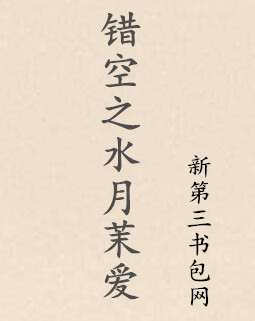 错空之水月茉爱
新第三书包网